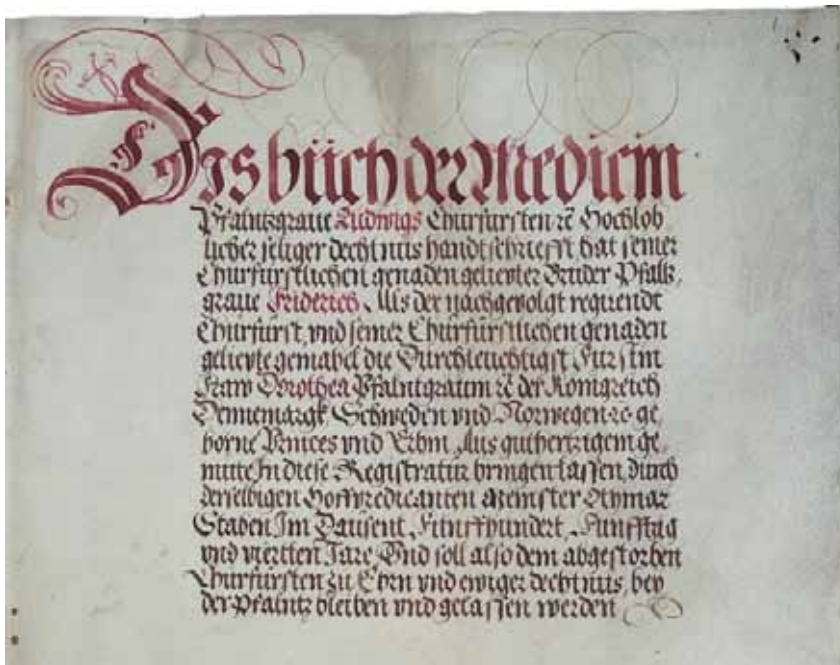 Dis büch der Medicin
Pfaltzgraue Ludwigs Churfursten rc̄ Hochlob
licher seliger dechtnus handtschriefft hat seiner
Churfürstlichen genaden geliepter Bruder Pfaltz,
graue Friderich Als der nachgevolgt regirendt
Churfürst, vnd seiner Churfürstlichen genaden
geliepte gemahel die Durchleuchtigst Fürstin
Fraw Dorothea Pfaltzgrauin rc̄ der Konigreich
Dennemargk Schweden vnd Norwegen rc ge
borne Princes vnd Erbin Aus guthertzigem ge,
mütte In diese Registratur bringen lassen, durch
derselbigen Hoffpredicanten Meinster Otmar
Staben Im Dausent, Fünffhundert, Funfftzig
vnd viertten Jare, Vnd soll also dem abgestorben
Churfürsten zu Ehrn vnd ewiger dechtnus, bey
der Pfaltz bleiben vnd gelassen werden